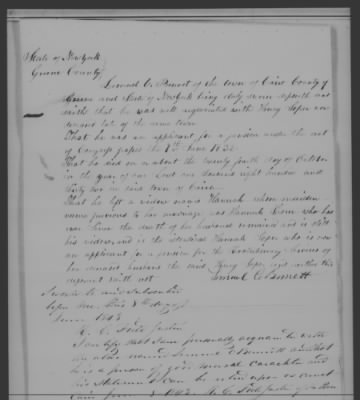 State of New York
Greene County
Samuel C. Bennett of the town of Cairo County of
Greene and State of New York being duly sworn deposeth and
saith that he was well acquainted with Henry Soper now
deceased late of the same town
That he was an applicant for a pension under the act
of Congress passed the 7th June 1832
That he died on or about the twenty fourth day of October
in the year of our Lord one thousand eight hundred and
thirty two in said town of Cairo
That he left a widow named Hannah whose maiden
name previous to her marriage was Hannah who has
ever since the death of her husband remained and is still
his widow, and is the identical Hannah Soper who is now
an applicant for a pension for the Revolutionary services of
her deceased husband the said Henry Soper and further this
deponent saith not. Samuel C Bennett
Sworn to and subscribed
before me this 8th day of
June 1843
Justice
I certify that I am personally acquainted with
the above named Samuel C Bennett and that
he is a person of good moral character and
his statements can be relied upon as correct
Cairo June 8 1843